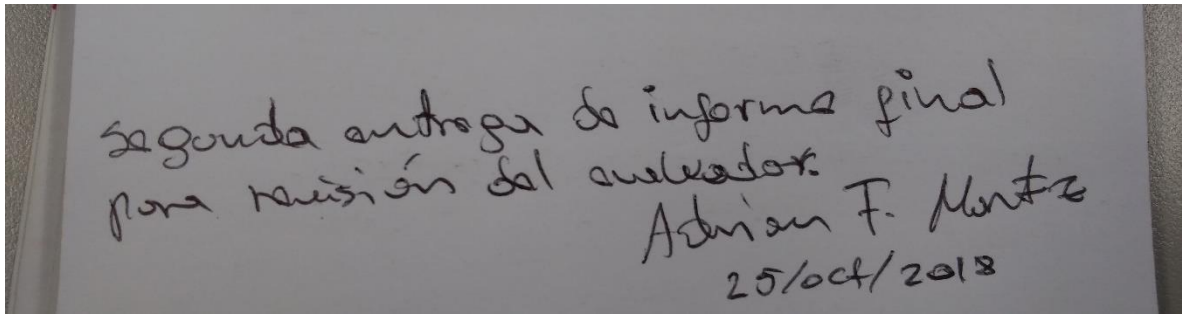 segunda entrega de informe final
para revisión del evaluador.
Adrian F.
25/oct/2018